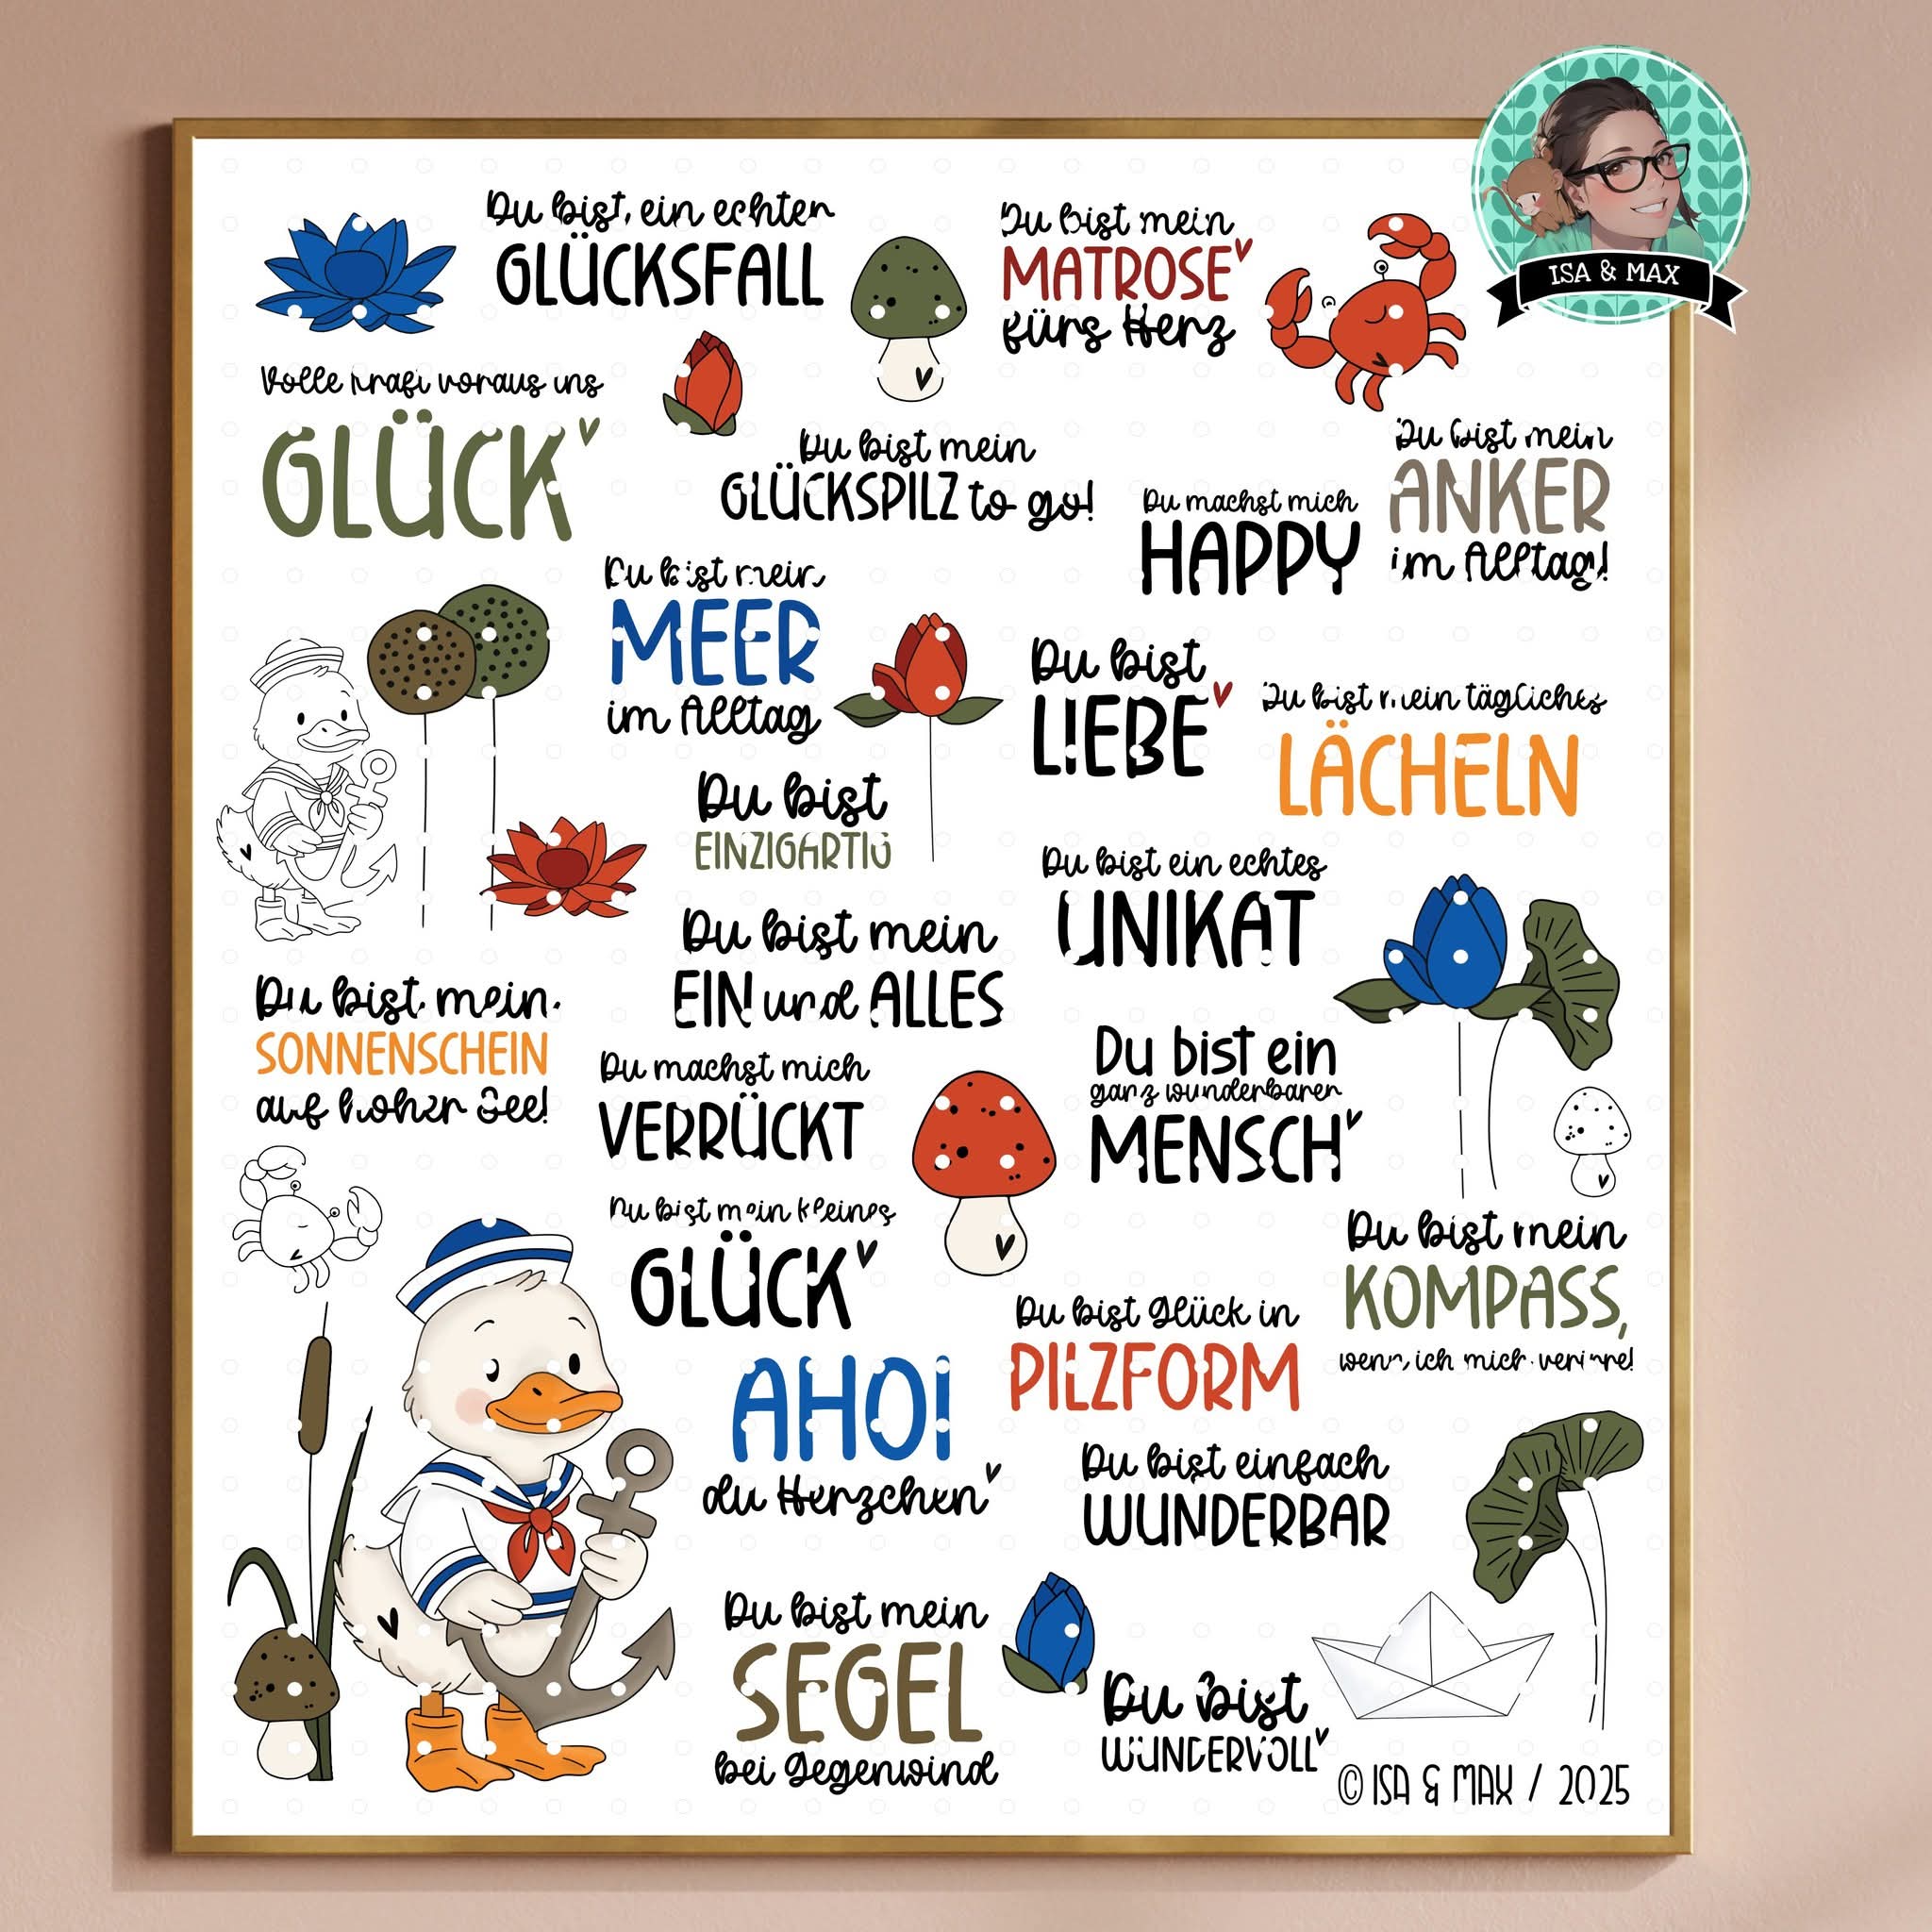 ISA & MAX
Du bist ein echter
GLÜCKSFALL
Du bist mein
MATROSE
fürs Herz
Volle Kraft voraus ins
GLÜCK
Du bist mein
GLÜCKSPILZ to go!
Du bist mein
ANKER
im Alltag!
Du machst mich
HAPPY
Du bist mein
MEER
im Alltag
Du bist
LIEBE
Du bist mein tägliches
LÄCHELN
Du bist
EINZIGARTIG
Du bist ein echtes
UNIKAT
Du bist mein
EIN und ALLES
Du bist mein
SONNENSCHEIN
auf hoher See!
Du machst mich
VERRÜCKT
Du bist ein
ganz wunderbarer
MENSCH
Du bist mein kleines
GLÜCK
Du bist mein
KOMPASS,
wenn ich mich verirre!
Du bist Glück in
PILZFORM
AHOI
du Herzchen
Du bist einfach
WUNDERBAR
Du bist mein
SEGEL
bei Gegenwind
Du bist
WUNDERVOLL
© ISA & MAX / 2025